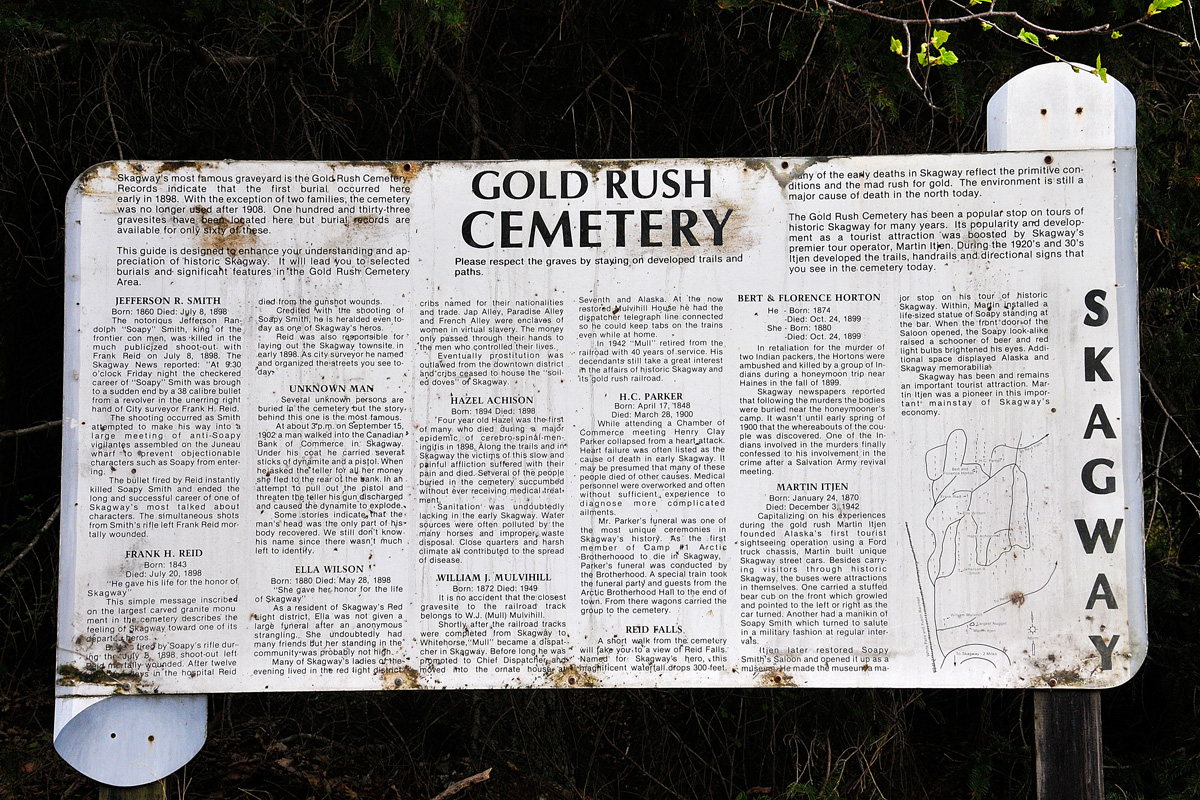 Skagway's most famous graveyard is the Gold Rush Cemetery.
Records indicate that the first burial occurred here
early in 1898. With the exception of two families, the cemetery
was no longer used after 1908. One hundred and thirty-three
gravesites have been located here but burial records are
available for only sixty of these.
This guide is designed to enhance your understanding and ap-
preciation of historic Skagway. It will lead you to selected
burials and significant features in the Gold Rush Cemetery
Area.
GOLD RUSH
CEMETERY
Please respect the graves by staying on developed trails and
paths.
of the early deaths in Skagway reflect the primitive con-
ditions and the mad rush for gold. The environment is still a
major cause of death in the north today.
The Gold Rush Cemetery has been a popular stop on tours of
historic Skagway for many years. Its popularity and develop-
ment as a tourist attraction was boosted by Skagway's
premier tour operator, Martin Itjen. During the 1920's and 30's
Itjen developed the trails, handrails and directional signs that
you see in the cemetery today.
JEFFERSON R. SMITH
Born: 1860 Died: July 8, 1898
The notorious Jefferson Ran-
dolph "Soapy" Smith, king of the
frontier con men, was killed in the
much publicized shoot-out with
Frank Reid on July 8, 1898. The
Skagway News reported: "At 9:30
o'clock Friday night the checkered
career of "Soapy" Smith was brough
to a sudden end by a 38 calibre bullet
from a revolver in the unerring right
hand of City surveyor Frank H. Reid.
The shooting occurred as Smith
attempted to make his way into a
large meeting of anti-Soapy
vigilantes assembled on the Juneau
wharf to prevent objectionable
characters such as Soapy from enter-
ing.
The bullet fired by Reid instantly
killed Soapy Smith and ended the
long and successful career of one of
Skagway's most talked about
characters. The simultaneous shots
from Smith's rifle left Frank Reid mor-
tally wounded.
FRANK H. REID
Born: 1843
Died: July 20, 1898
"He gave his life for the honor of
Skagway"
This simple message inscribed
on the largest carved granite monu
ment in the cemetery describes the
feeling of Skagway toward one of its
departed heros.
fired by Soapy's rifle dur-
ing the July 8, 1898, shoot-out left
mortally wounded. After twelve
days in the hospital Reid
died from the gunshot wounds.
Credited with the shooting of
Soapy Smith, he is heralded even to-
day as one of Skagway's heros.
Reid was also responsible for
laying out the Skagway townsite in
early 1898. As city surveyor he named
and organized the streets you see to-
day.
UNKNOWN MAN
Several unknown persons are
buried in the cemetery but the story
behind this one is the most famous.
At about 3 p.m. on September 15,
1902 a man walked into the Canadian
Bank of Commerce in Skagway.
Under his coat he carried several
sticks of dynamite and a pistol. When
he asked the teller for all her money
she fled to the rear of the bank. In an
attempt to pull out the pistol and
threaten the teller his gun discharged
and caused the dynamite to explode.
Some stories indicate that the
man's head was the only part of his
body recovered. We still don't know
his name since there wasn't much
left to identify.
ELLA WILSON
Born: 1880 Died: May 28, 1898
"She gave her honor for the life
of Skagway"
As a resident of Skagway's Red
Light district, Ella was not given a
large funeral after an anonymous
strangling. She undoubtedly had
many friends but her standing in the
community was probably not high.
Many of Skagway's ladies of the
evening lived in the red light district
cribs named for their nationalities
and trade. Jap Alley, Paradise Alley
and French Alley were enclaves of
women in virtual slavery. The money
only passed through their hands to
the men who controlled their lives.
Eventually prostitution was
outlawed from the downtown district
and cribs ceased to house the "soil-
ed doves" of Skagway.
HAZEL ACHISON
Born: 1894 Died: 1898
Four year old Hazel was the first
of many who died during a major
epidemic of cerebro-spinal-men-
ingitis in 1898. Along the trails and in
Skagway the victims of this slow and
painful affliction suffered with their
pain and died. Several of the people
buried in the cemetery succumbed
without ever receiving medical treat-
ment.
Sanitation was undoubtedly
lacking in the early Skagway. Water
sources were often polluted by the
many horses and improper waste
disposal. Close quarters and harsh
climate all contributed to the spread
of disease.
WILLIAM J. MULVIHILL
Born: 1872 Died: 1949
It is no accident that the closest
gravesite to the railroad track
belongs to W.J. (Mul) Mulvihill.
Shortly after the railroad tracks
were completed from Skagway to
Whitehorse, "Mull" became a dispat-
cher in Skagway. Before long he was
promoted to Chief Dispatcher and
moved into the ornate house
Seventh and Alaska. At the now
restored Mulvihill House he had the
dispatcher telegraph line connected
so he could keep tabs on the trains
even while at home.
In 1942 "Mull" retired from the
railroad with 40 years of service. His
decendants still take a great interest
in the affairs of historic Skagway and
its gold rush railroad.
H.C. PARKER
Born: April 17, 1848
Died: March 28, 1900
While attending a Chamber of
Commerce meeting Henry Clay
Parker collapsed from a heart attack.
Heart failure was often listed as the
cause of death in early Skagway. It
may be presumed that many of these
people died of other causes. Medical
personnel were overworked and often
without sufficient experience to
diagnose more complicated
ailments.
Mr. Parker's funeral was one of
the most unique ceremonies in
Skagway's history. As the first
member of Camp #1 Arctic
Brotherhoood to die in Skagway,
Parker's funeral was conducted by
the Brotherhood. A special train took
the funeral party and guests from the
Arctic Brotherhood Hall to the end of
town. From there wagons carried the
group to the cemetery.
REID FALLS
A short walk from the cemetery
will take you to a view of Reid Falls.
Named for Skagway's hero, this
magnificent waterfall drops 300 feet.
BERT & FLORENCE HORTON
He - Born: 1874
-Died: Oct. 24, 1899
She - Born: 1880
-Died: Oct. 24, 1899
In retaliation for the murder of
two Indian packers, the Hortons were
ambushed and killed by a group of In-
dians during a honeymoon trip near
Haines in the fall of 1899.
Skagway newspapers reported
that following the murders the bodies
were buried near the honeymooner's
camp. It wasn't until early spring of
1900 that the whereabouts of the cou-
ple was discovered. One of the In-
dians involved in the murders finally
confessed to his involvement in the
crime after a Salvation Army revival
meeting.
MARTIN ITJEN
Born: January 24, 1870
Died: December 3, 1942
Capitalizing on his experiences
during the gold rush Martin Itjen
founded Alaska's first tourist
sightseeing operation using a Ford
truck chassis, Martin built unique
Skagway street cars. Besides carry-
ing visitors through historic
Skagway, the buses were attractions
in themselves. One carried a stuffed
bear cub on the front which growled
and pointed to the left or right as the
car turned. Another had a manikin of
Soapy Smith which turned to salute
in a military fashion at regular inter-
vals.
Itjen later restored Soapy
Smith's Saloon and opened it up as a
museum. He made the museum a ma-
jor stop on his tour of historic
Skagway. Within, Martin installed a
life-sized statue of Soapy standing at
the bar. When the front door of the
Saloon opened, the Soapy look-alike
raised a schooner of beer and red
light bulbs brightened his eyes. Addi-
tional space displayed Alaska and
Skagway memorabilia.
Skagway has been and remains
an important tourist attraction. Mar-
tin Itjen was a pioneer in this impor-
tant mainstay of Skagway's
economy.
To Skagway - 2 Miles
SKAGWAY